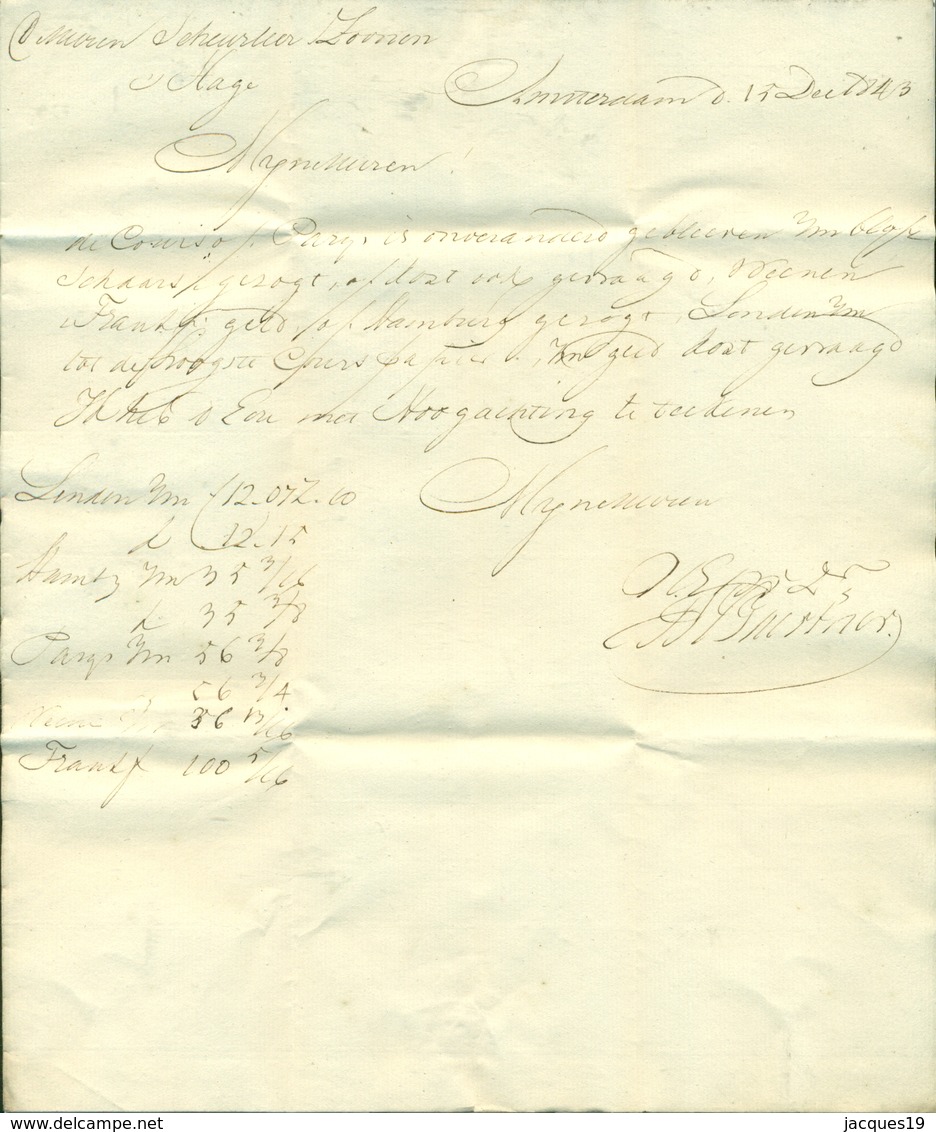 Heeren Scheurleer & Zoonen
s'Hage
Amsterdam d. 15 Dec 1843
Mijne Heeren!
de Cours op Parys is onveranderd gebleeven
schaars & gezogt, doch ook gevraagd, Weenen
& Frankf. geld, op Hamburg gezogt, Londen
tot de hoogste Cours papier geld gevraagd
Ik heb d' Eer met Hoogachting te teekenen
Londen 12.07½.
d 12.15
Hamb 35 3/16
d 35 3/8
Mijne Heeren
Parys 56 3/8
56 3/4
36 13/16
Frankf 100 5/16
www.delcampe.net
jacques19